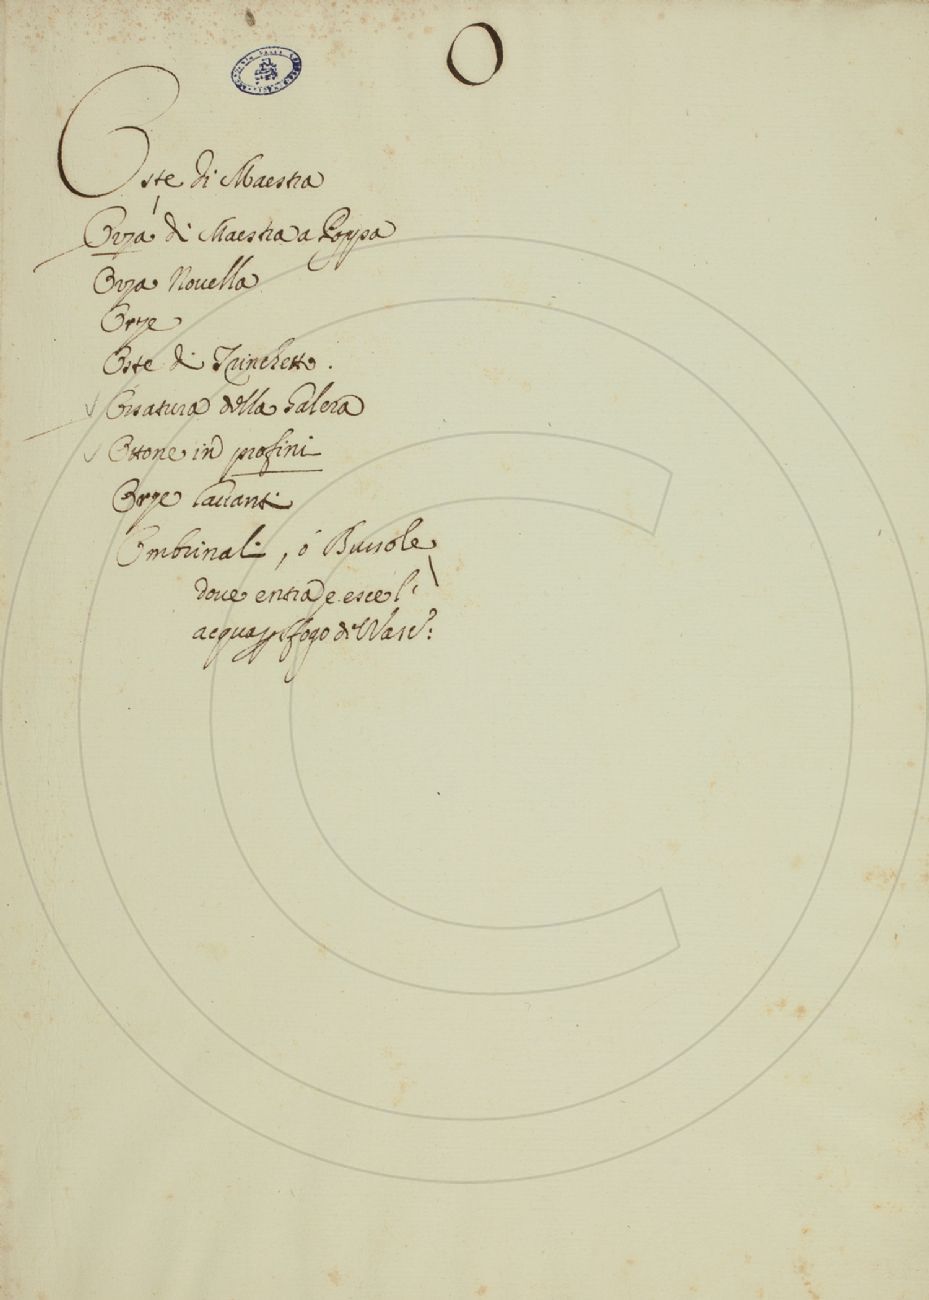 O
Oste di Maestra
Orza di Maestra a Poppa
Orza Novella
Orze
Oste di Trinchetto.
Orsatura della Galera
Ottone in profini
Orze
Ombrinali, ó Bussole
doue entra e esce l'
acqua sfogo di Vasc: